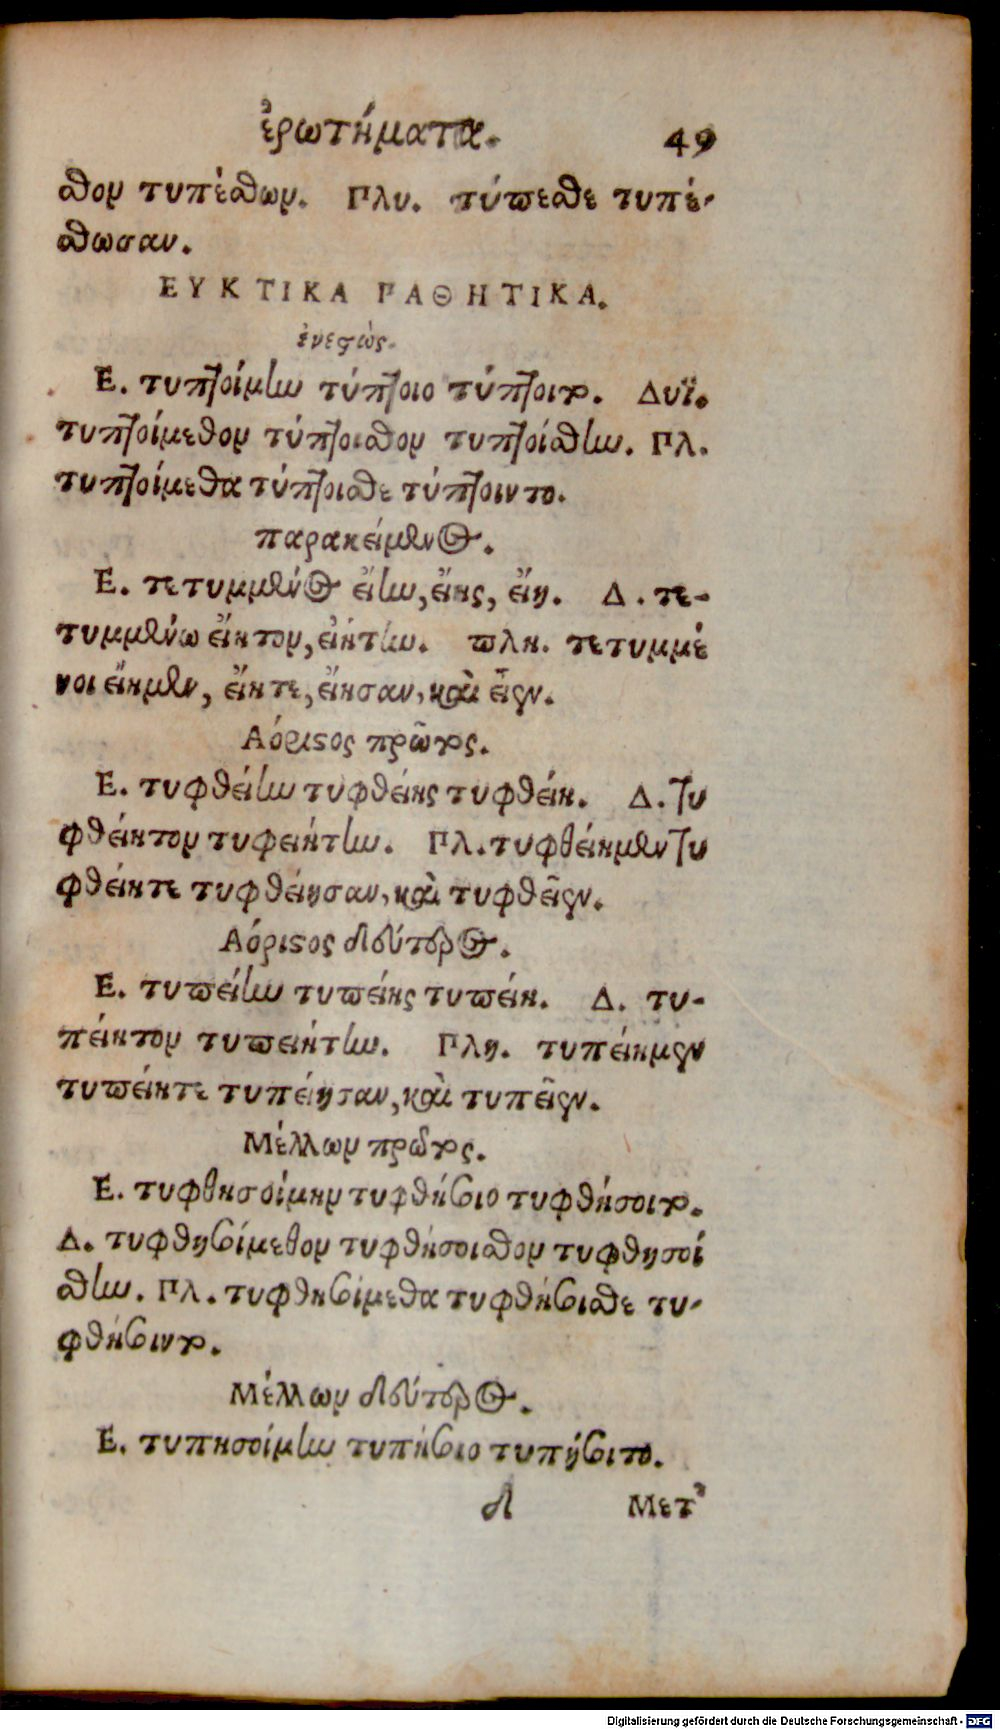 ἐρωτήματα. 49
σθον τυπέσθων. Πλυ. τύπεσθε τυπέ-
σθωσαν.
ΕΥΚΤΙΚΑ ΠΑΘΗΤΙΚΑ.
ἐνεστὼς.
Ε. τυπτοίμην τύπτοιο τύπτοιτο. Δυϊ.
τυπτοίμεθον τύπτοισθον τυπτοίσθην. Πλ.
τυπτοίμεθα τύπτοισθε τύπτοιντο.
παρακείμενος.
Ε. τετυμμένος εἴην, εἴης, εἴη. Δ. τε-
τυμμένω εἴητον, εἰήτην. πλη. τετυμμέ
νοι εἴημεν, εἴητε, εἴησαν, καὶ εἶεν.
Αόριστος πρῶτος.
Ε. τυφθείην τυφθείης τυφθείη. Δ. τυ
φθείητον τυφειήτην. Πλ. τυφθείημεν τυ
φθείητε τυφθείησαν, καὶ τυφθεῖεν.
Αόριστος δεύτερος.
Ε. τυπείην τυπείης τυπείη. Δ. τυ-
πείητον τυπειήτην. Πλη. τυπείημεν
τυπείητε τυπείησαν, καὶ τυπεῖεν.
Μέλλων πρῶτος.
Ε. τυφθησοίμην τυφθήσοιο τυφθήσοιτο.
Δ. τυφθησοίμεθον τυφθήσοισθον τυφθησοί
σθην. Πλ. τυφθησοίμεθα τυφθήσοισθε τυ-
φθήσοιντο.
Μέλλων δεύτερος.
Ε. τυπησοίμην τυπήσοιο τυπήσοιτο.
δ Μετ'
Digitalisierung gefördert durch die Deutsche Forschungsgemeinschaft - DFG